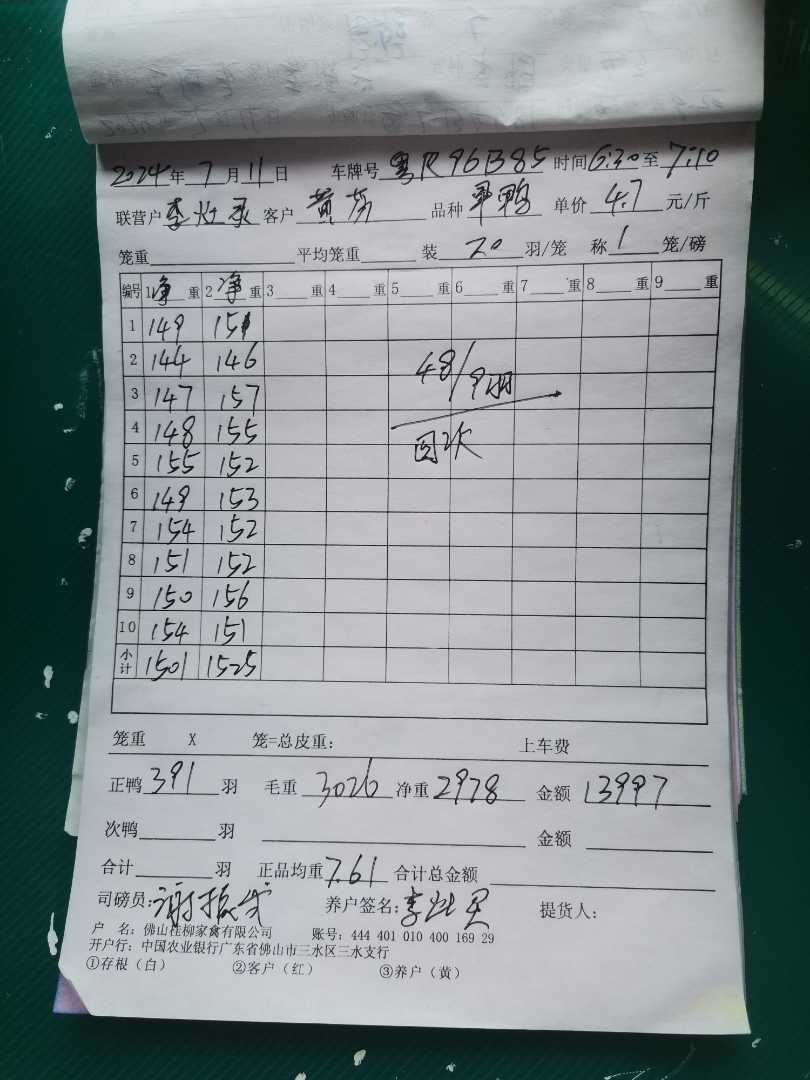 2024年7月11日 车牌号 粤R96B85 时间6:30至7:10
联营户 李灶 客户 黄 品种 鸭 单价 4.7 元/斤
笼重 平均笼重 装 20 羽/笼 称 1 笼/磅
编号 1 净 重 2 净 重 3 重 4 重 5 重 6 重 7 重 8 重 9 重
1 149 151
2 144 146
48/9羽
3 147 157
4 148 155
回
5 155 152
6 149 153
7 154 152
8 151 152
9 150 156
10 154 151
小计 1501 1525
笼重 X 笼=总皮重: 上车费
正鸭 391 羽 毛重 3026 净重 2978 金额 13997
次鸭 羽 金额
合计 羽 正品均重 7.61 合计总金额
司磅员: 谢振 养户签名: 李灶 提货人:
户 名: 佛山桂柳家禽有限公司 账号: 444 401 010 400 169 29
开户行: 中国农业银行广东省佛山市三水区三水支行
①存根(白) ②客户(红) ③养户(黄)